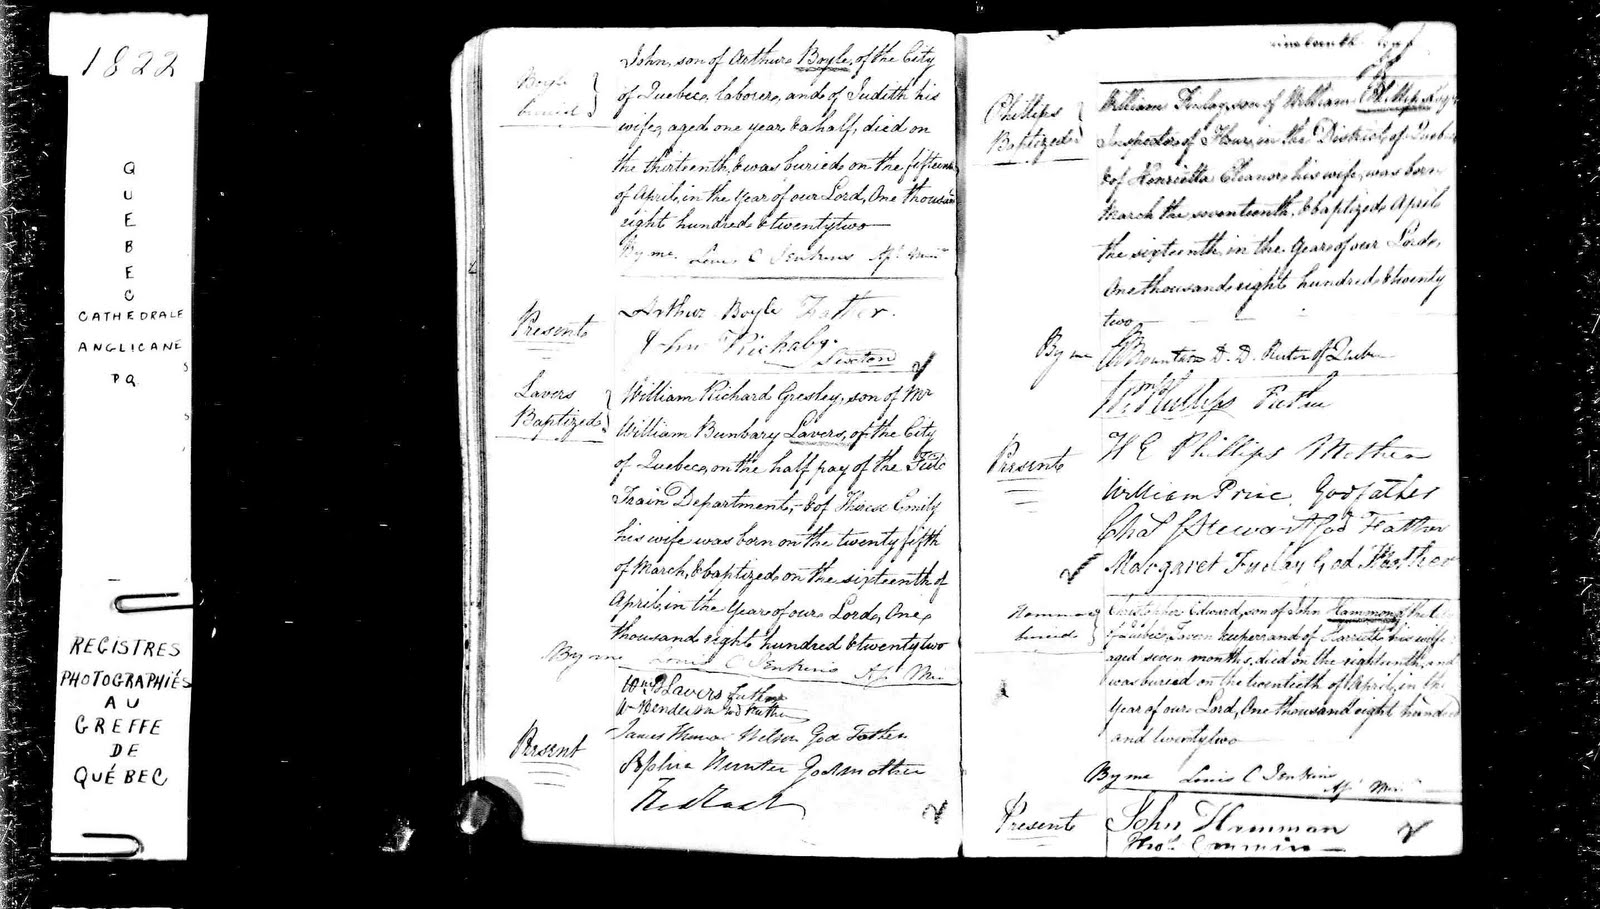 1822
QUEBEC
CATHEDRALE
ANGLICANE
PQ
REGISTRES
PHOTOGRAPHIÉS
AU
GREFFE
DE
QUÉBEC
Boyle
buried
John, son of Arthur Boyle, of the City
of Quebec, laborer, and of Judith his
wife, aged one year & a half, died on
the thirteenth, & was buried on the fifteenth
of April, in the Year of our Lord, One thousand
eight hundred & twentytwo
By me. Louis C Jenkins As! Min!
Present
Arthur Boyle Father.
John Rickaby
Sexton
Lavers
Baptized
William Richard Gresley, son of Mr
William Bunbury Lavers, of the City
of Quebec, on the half pay of the Field
Train Department, & of Therese Emily
his wife was born on the twenty fifth
of March, & baptized on the sixteenth of
April, in the Year of our Lord, One
thousand eight hundred & twentytwo
By me Louis C Jenkins As! Min
Present
Wm B Lavers Father
W Henderson God Father
James Nelson God Father
Sophia Hunter Godmother
nineteenth
Phillips
Baptized
William Finlay, son of William Phillips, Esqr
Inspector of Flour, in the District of Quebec
& of Henrietta Eleanor his wife, was born
March the seventeenth, & baptized April
the sixteenth in the Year of our Lord,
One thousand eight hundred & twenty
two
By me G Mountain D. D. Rector of Quebec
Wm Phillips Father
Present
H E Phillips Mother
William Price Godfather
Chas Stewart God Father
Margaret Finlay God Mother
Hammond
buried
Christopher Edward, son of John Hammond, of the City
of Quebec, Tavern keeper and of Harriett his wife
aged seven months, died on the eighteenth, and
was buried on the twentieth of April, in the
Year of our Lord, One thousand eight hundred
and twentytwo
By me Louis C Jenkins
As! Min!
Present
John Hamman
Thos